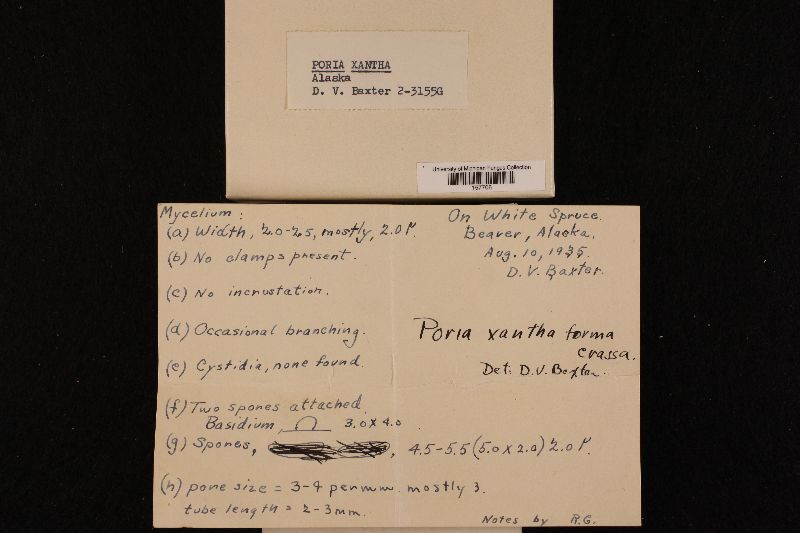 PORIA XANTHA
Alaska
D. V. Baxter 2-3155G
University of Michigan Fungus Collection
Mycelium:
(a) Width, 2.0-2.5, mostly, 2.0 µ.
(b) No clamps present.
(c) No incrustation.
(d) Occasional branching.
(e) Cystidia, none found.
(f) Two spores attached
Basidium, 3.0 x 4.0
(g) Spores, , 4.5-5.5 (5.0 x 2.0) 2.0 µ.
(h) pore size = 3-4 per mm. mostly 3.
tube length = 2-3 mm.
On White Spruce.
Beaver, Alaska.
Aug. 10, 1935.
D. V. Baxter.
Poria xantha forma
crassa.
Det: D. V. Baxter.
Notes by R.G.